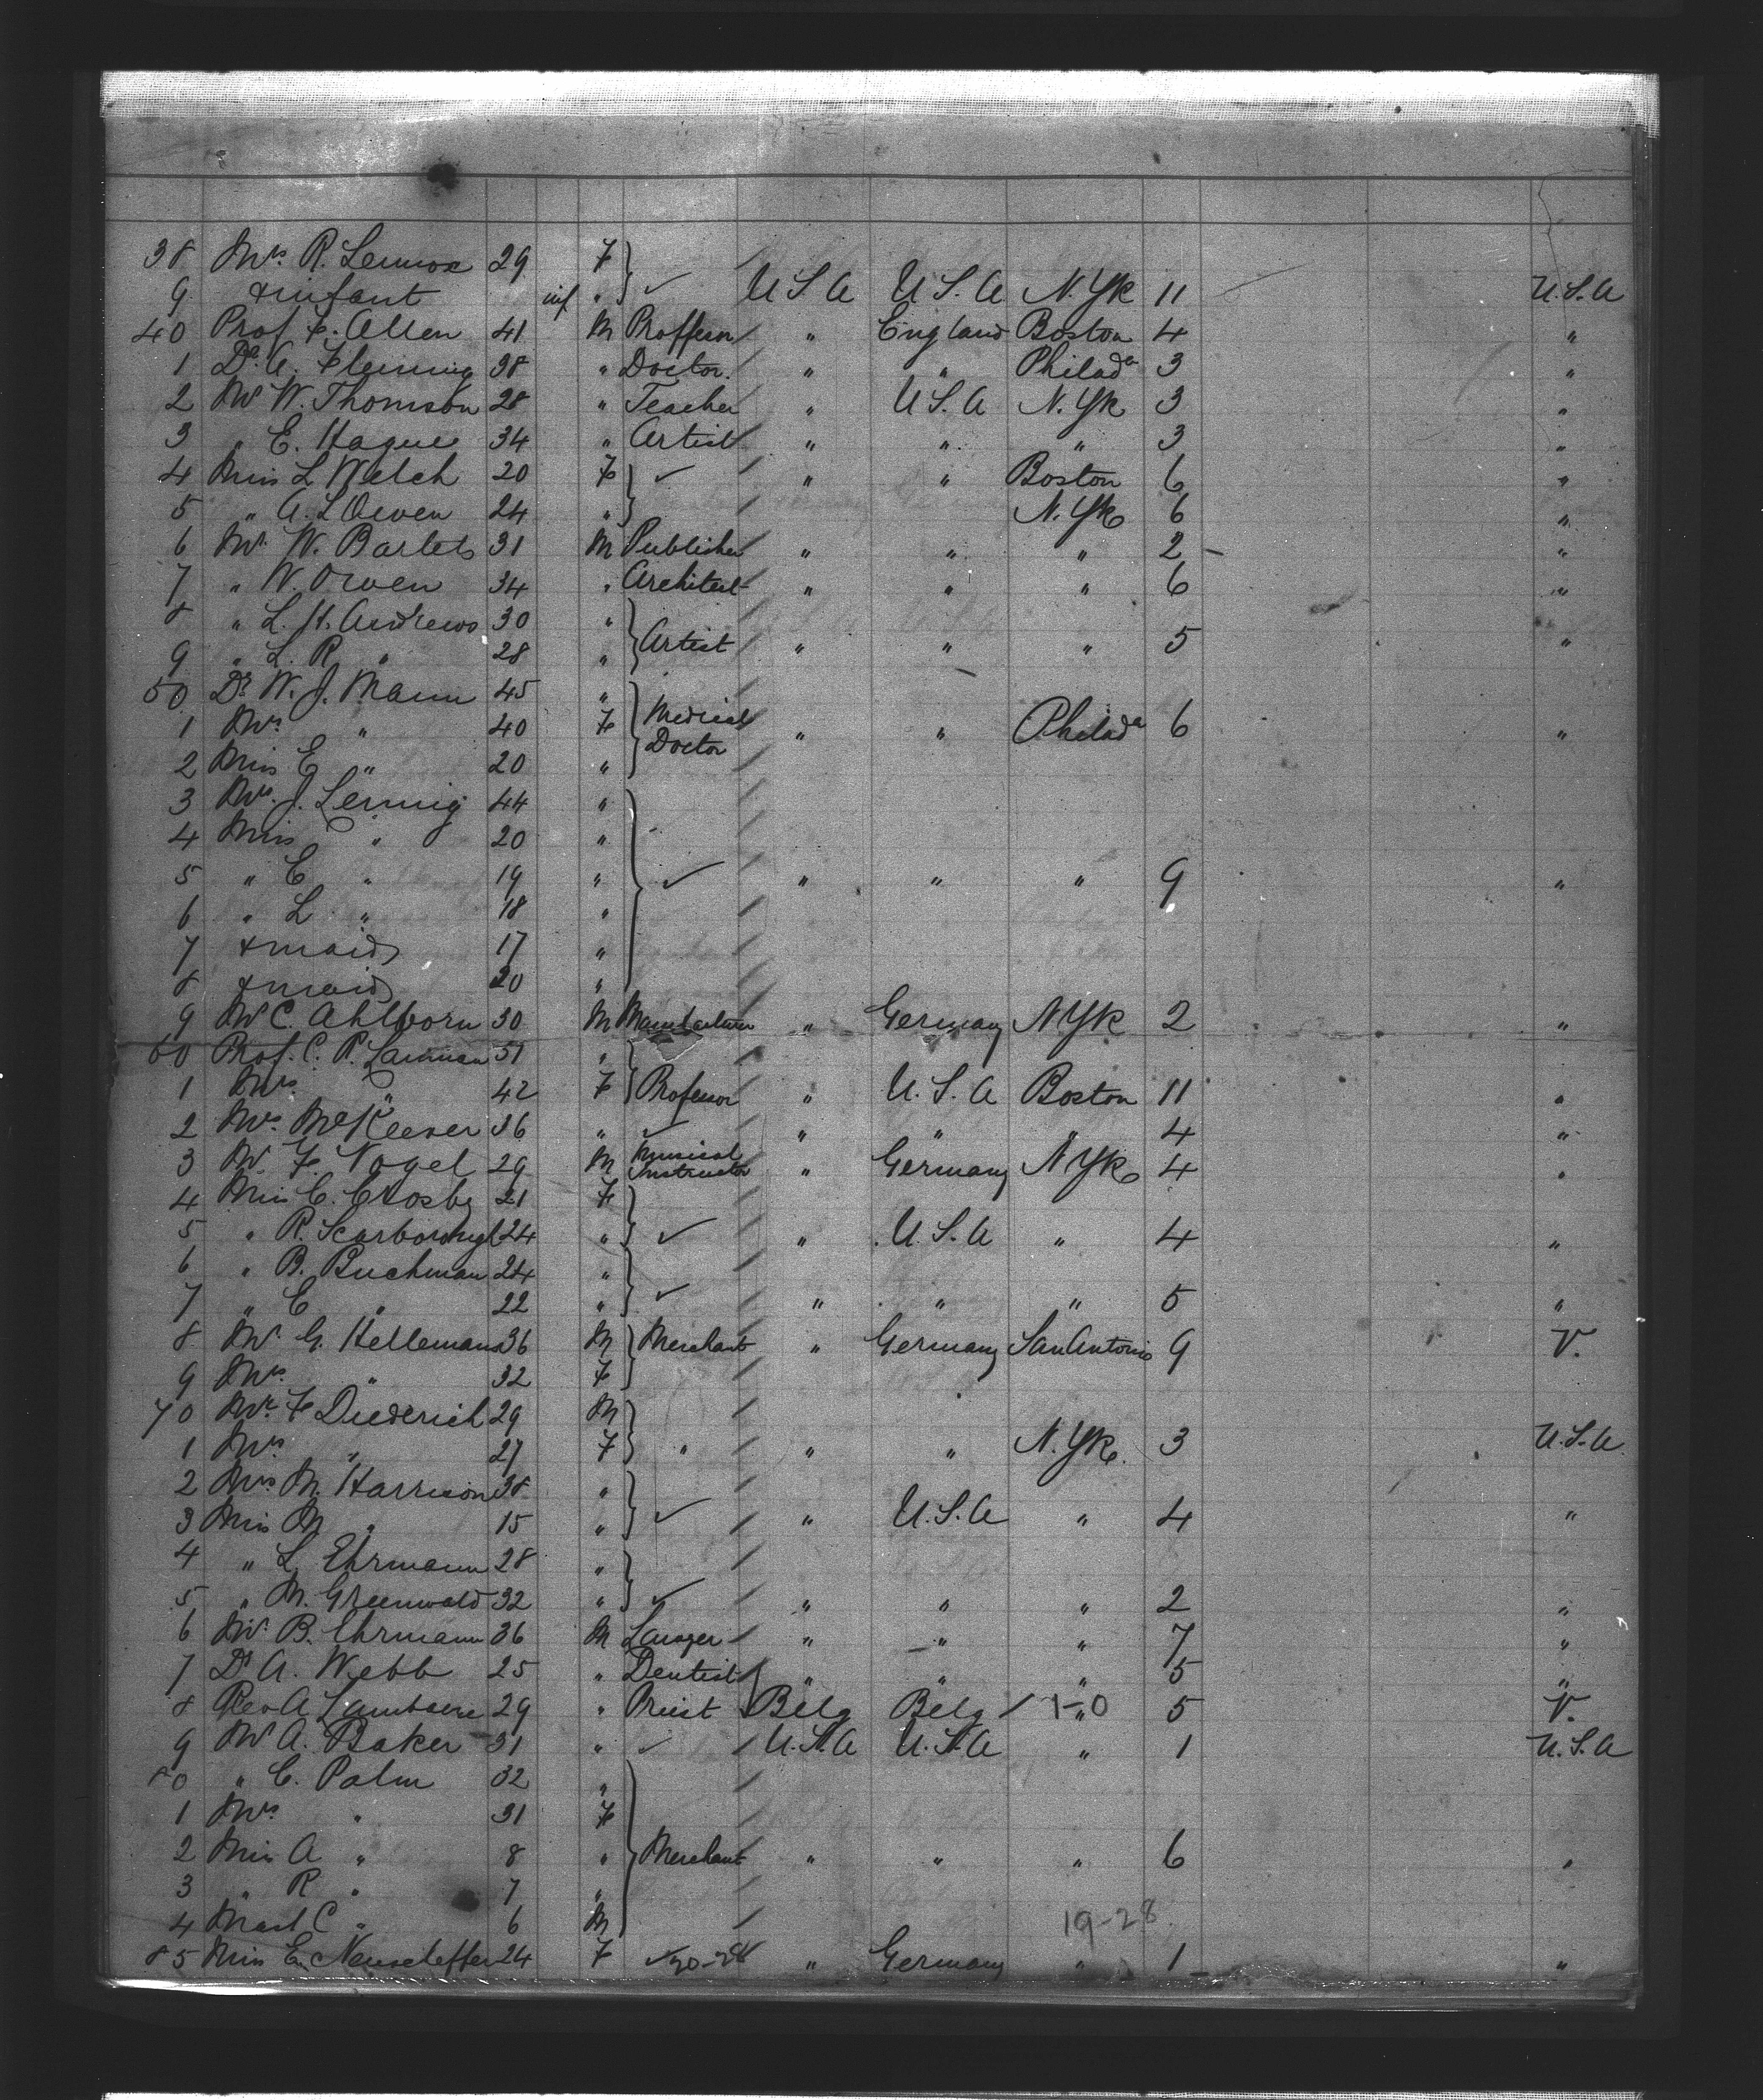 38 Mrs R. Lennox 29 F
9 & infant inf " U.S.A U.S.A. N.Yk 11 U.S.A
40 Prof. F. Allen 41 M Proffesor " England Boston 4 "
1 Dr. A. Fleming 38 " Doctor. " " Philada 3 "
2 Mr W. Thomson 28 " Teacher " U.S.A N.Yk 3 "
3 " E. Hague 34 " Artist " " " 3 "
4 Miss L Welch 20 F " " Boston 6 "
5 " A. L Owen 24 " N.Yk 6 "
6 Mr. W. Bartels 31 M Publisher " " " 2 - "
7 " W. Owen 34 " Architect " " " 6 "
8 " L. H. Andrews 30 "
9 " L. R " 28 " Artist " " " 5 "
50 Dr W. J. Mann 45 "
1 Mrs " 40 F Medical Doctor " " Philada 6 "
2 Miss E " 20 "
3 Mrs. J. Lennig 44 "
4 Miss " 20 "
5 " E " 19 " " " " 9 "
6 " L " 18 "
7 & maid 17 "
8 & maid 20 "
9 Mr C. Ahlborn 30 M Manufacturer " Germany N Yk 2 "
60 Prof. C. R. Lanman 51 "
1 Mrs " 42 F Professor " U.S.A Boston 11 "
2 Mrs. McKeever 36 " " " " 4 "
3 Mr. F. Vogel 29 M Musical Instructor " Germany N Yk 4 "
4 Miss C. Crosby 21 F
5 " R. Scarborough 24 " " U.S.A " 4 "
6 " B. Buchman 24 "
7 " C " 22 " " " " 5 "
8 Mr G. Hellemans 36 M Merchant " Germany San Antonio 9 V.
9 Mrs. " 32 F
70 Mr. F Diederich 29 M
1 Mrs " 27 F " " " N.Yk. 3 U.S.A
2 Mrs M. Harrison 38 "
3 Miss M " 15 " " U.S.A " 4 "
4 " L. Ehrmann 28 "
5 " M. Greenwald 32 " " " " 2 "
6 Mr. B. Ehrmann 36 M Lawyer " " " 7 "
7 Dr A. Webb 25 " Dentist " " " 5 "
8 Rev A 29 " Priest Belg Belg 1-0 " 5 V.
9 Mr A. Baker 31 " U.S.A U.S.A " 1 U.S.A
80 " C. Palm 32 "
1 Mrs. " 31 F
2 Miss A " 8 " Merchant " " " 6 "
3 " R " 7 "
4 Mast C " 6 M 19-28
85 Miss E. 24 F 20-28 " Germany " 1 "